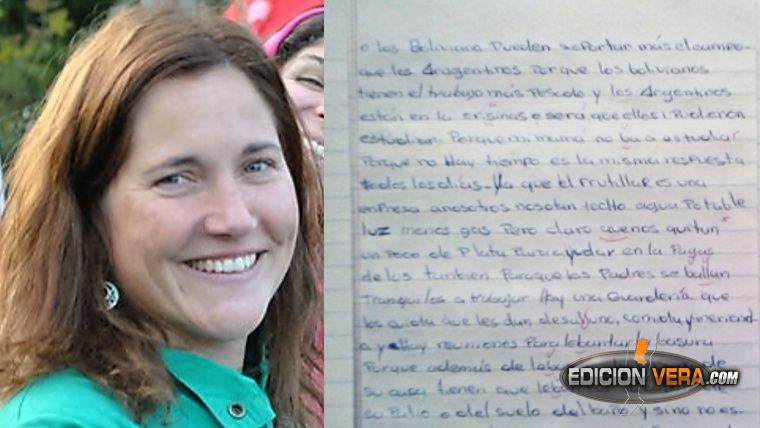 o los Bolivianos Pueden soportar más el campo
que los Aragentinos Porque los bolivianos
tienen el trabajo más Pescdo y los Argentinos
están en la ofisinas o será que ellos i Pudieron
estudiar. Porque mi mamá no ba a estudiar
Porque no Hay tiempo es la misma respuesta
todos los dias. Ya que El Frutillar es una
enPresa anosotros nos dan techo agua Potable
luz menos gas Pero claro que nos quitan
un Poco de Plata Para ayudar en la Pagas
de los tambien Para que los Padres se ballan
Tranquilos a trabajar Hay una Guardería que
los cuida que les dan desalluno, comida y meriend
a y Hay reuniones Para lebantar la basura
Porque además de de
su casa tienen que
su Patio o del suelo del baño y sino no es.
EDICION VERA.com